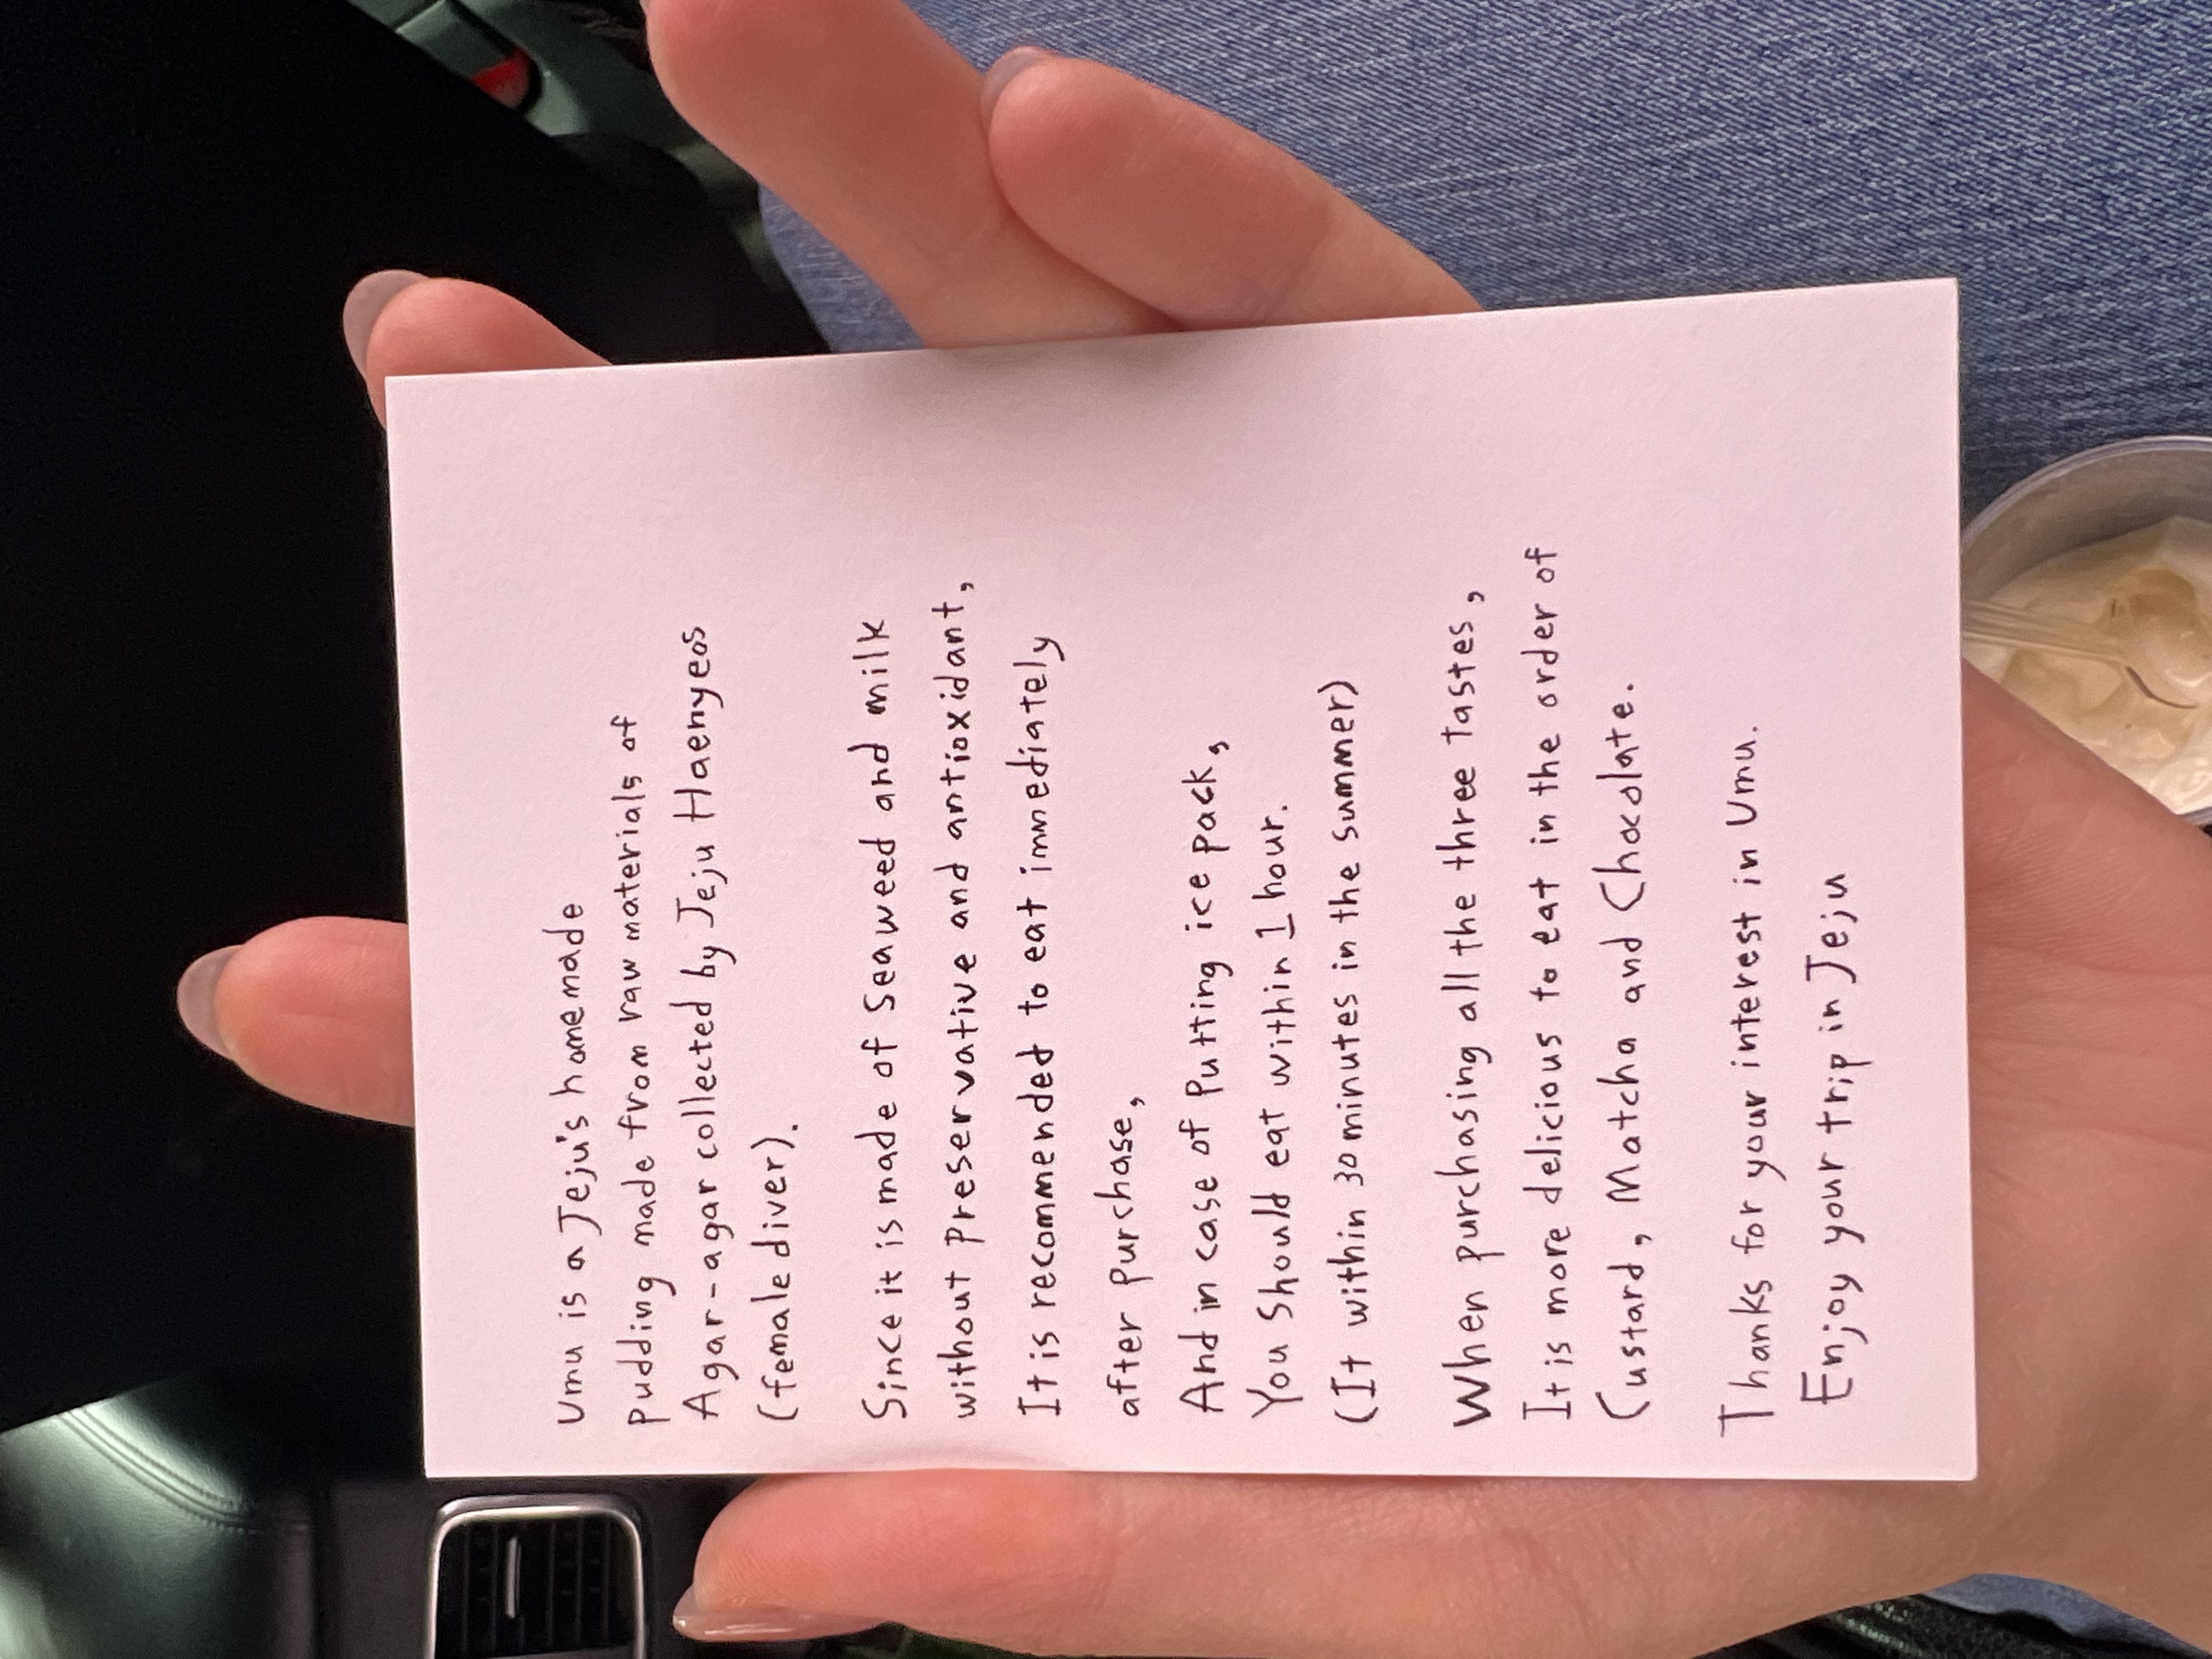 Umu is a Jeju's homemade
pudding made from raw materials of
Agar-agar collected by Jeju Haenyeos
(female diver).
Since it is made of seaweed and milk
without preservative and antioxidant,
It is recommended to eat immediately
after purchase,
And in case of putting ice pack,
You should eat within 1 hour.
(It within 30 minutes in the summer)
When purchasing all the three tastes,
It is more delicious to eat in the order of
Custard, Matcha and Chocolate.
Thanks for your interest in Umu.
Enjoy your trip in Jeju